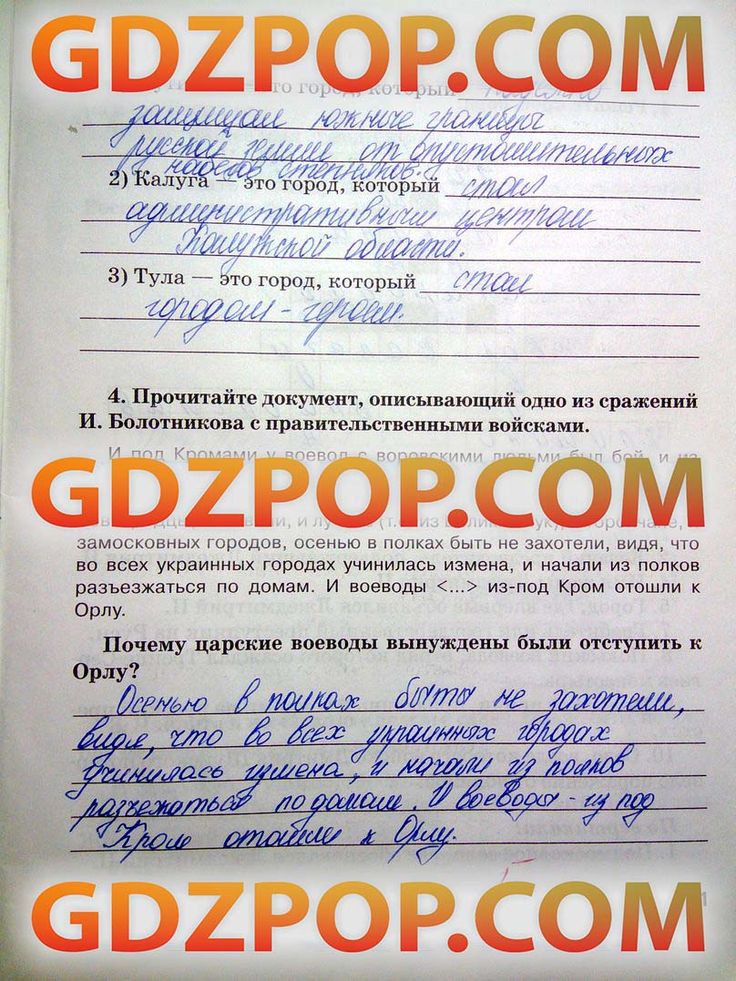 GDZPOP.COM
это город, который
защищал южные границы
русской земли от опустошительных
набегов степняков.
2) Калуга — это город, который стал
административным центром
Калужской области.
3) Тула — это город, который стал
городом-героем.
4. Прочитайте документ, описывающий одно из сражений
И. Болотникова с правительственными войсками.
И под Кромами у воевод с воровскими людьми был бой, и из
GDZPOP.COM
замосковных городов, осенью в полках быть не захотели, видя, что
во всех украинных городах учинилась измена, и начали из полков
разъезжаться по домам. И воеводы <...> из-под Кром отошли к
Орлу.
Почему царские воеводы вынуждены были отступить к
Орлу?
Осенью в полках быть не захотели,
видя, что во всех украинных городах
учинилась измена, и начали из полков
разъежаться по домам. И воеводы - из под
Кром отошли к Орлу.
GDZPOP.COM